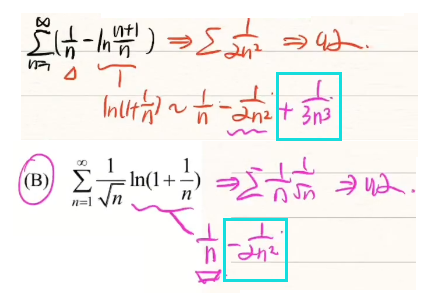 ∞
∑ (1/n - ln (n+1)/n) ⇒ ∑ 1/(2n²) ⇒ 收.
n=1
ln(1+1/n) ~ 1/n - 1/(2n²) + 1/(3n³)
(B) ∞
∑ 1/√n ln(1+1/n) ⇒ ∑ 1/n 1/√n ⇒ 收.
n=1
1/n - 1/(2n²)